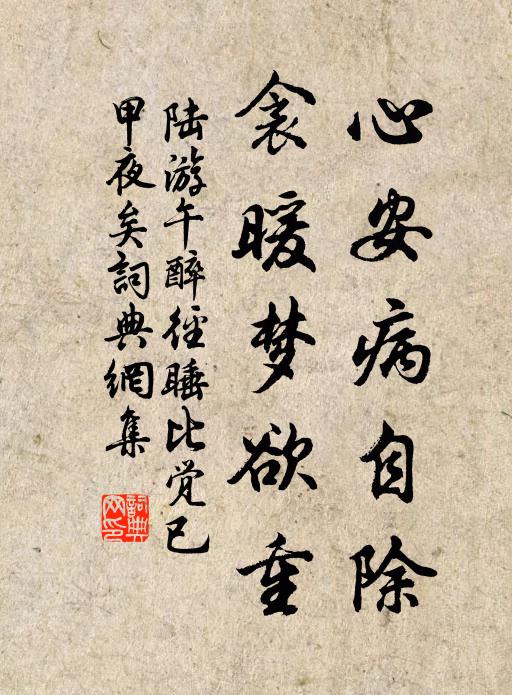 心安病自除
衾暖梦欲重
陆游午醉径睡比觉已
甲夜矣詞典網集
詞典
网印